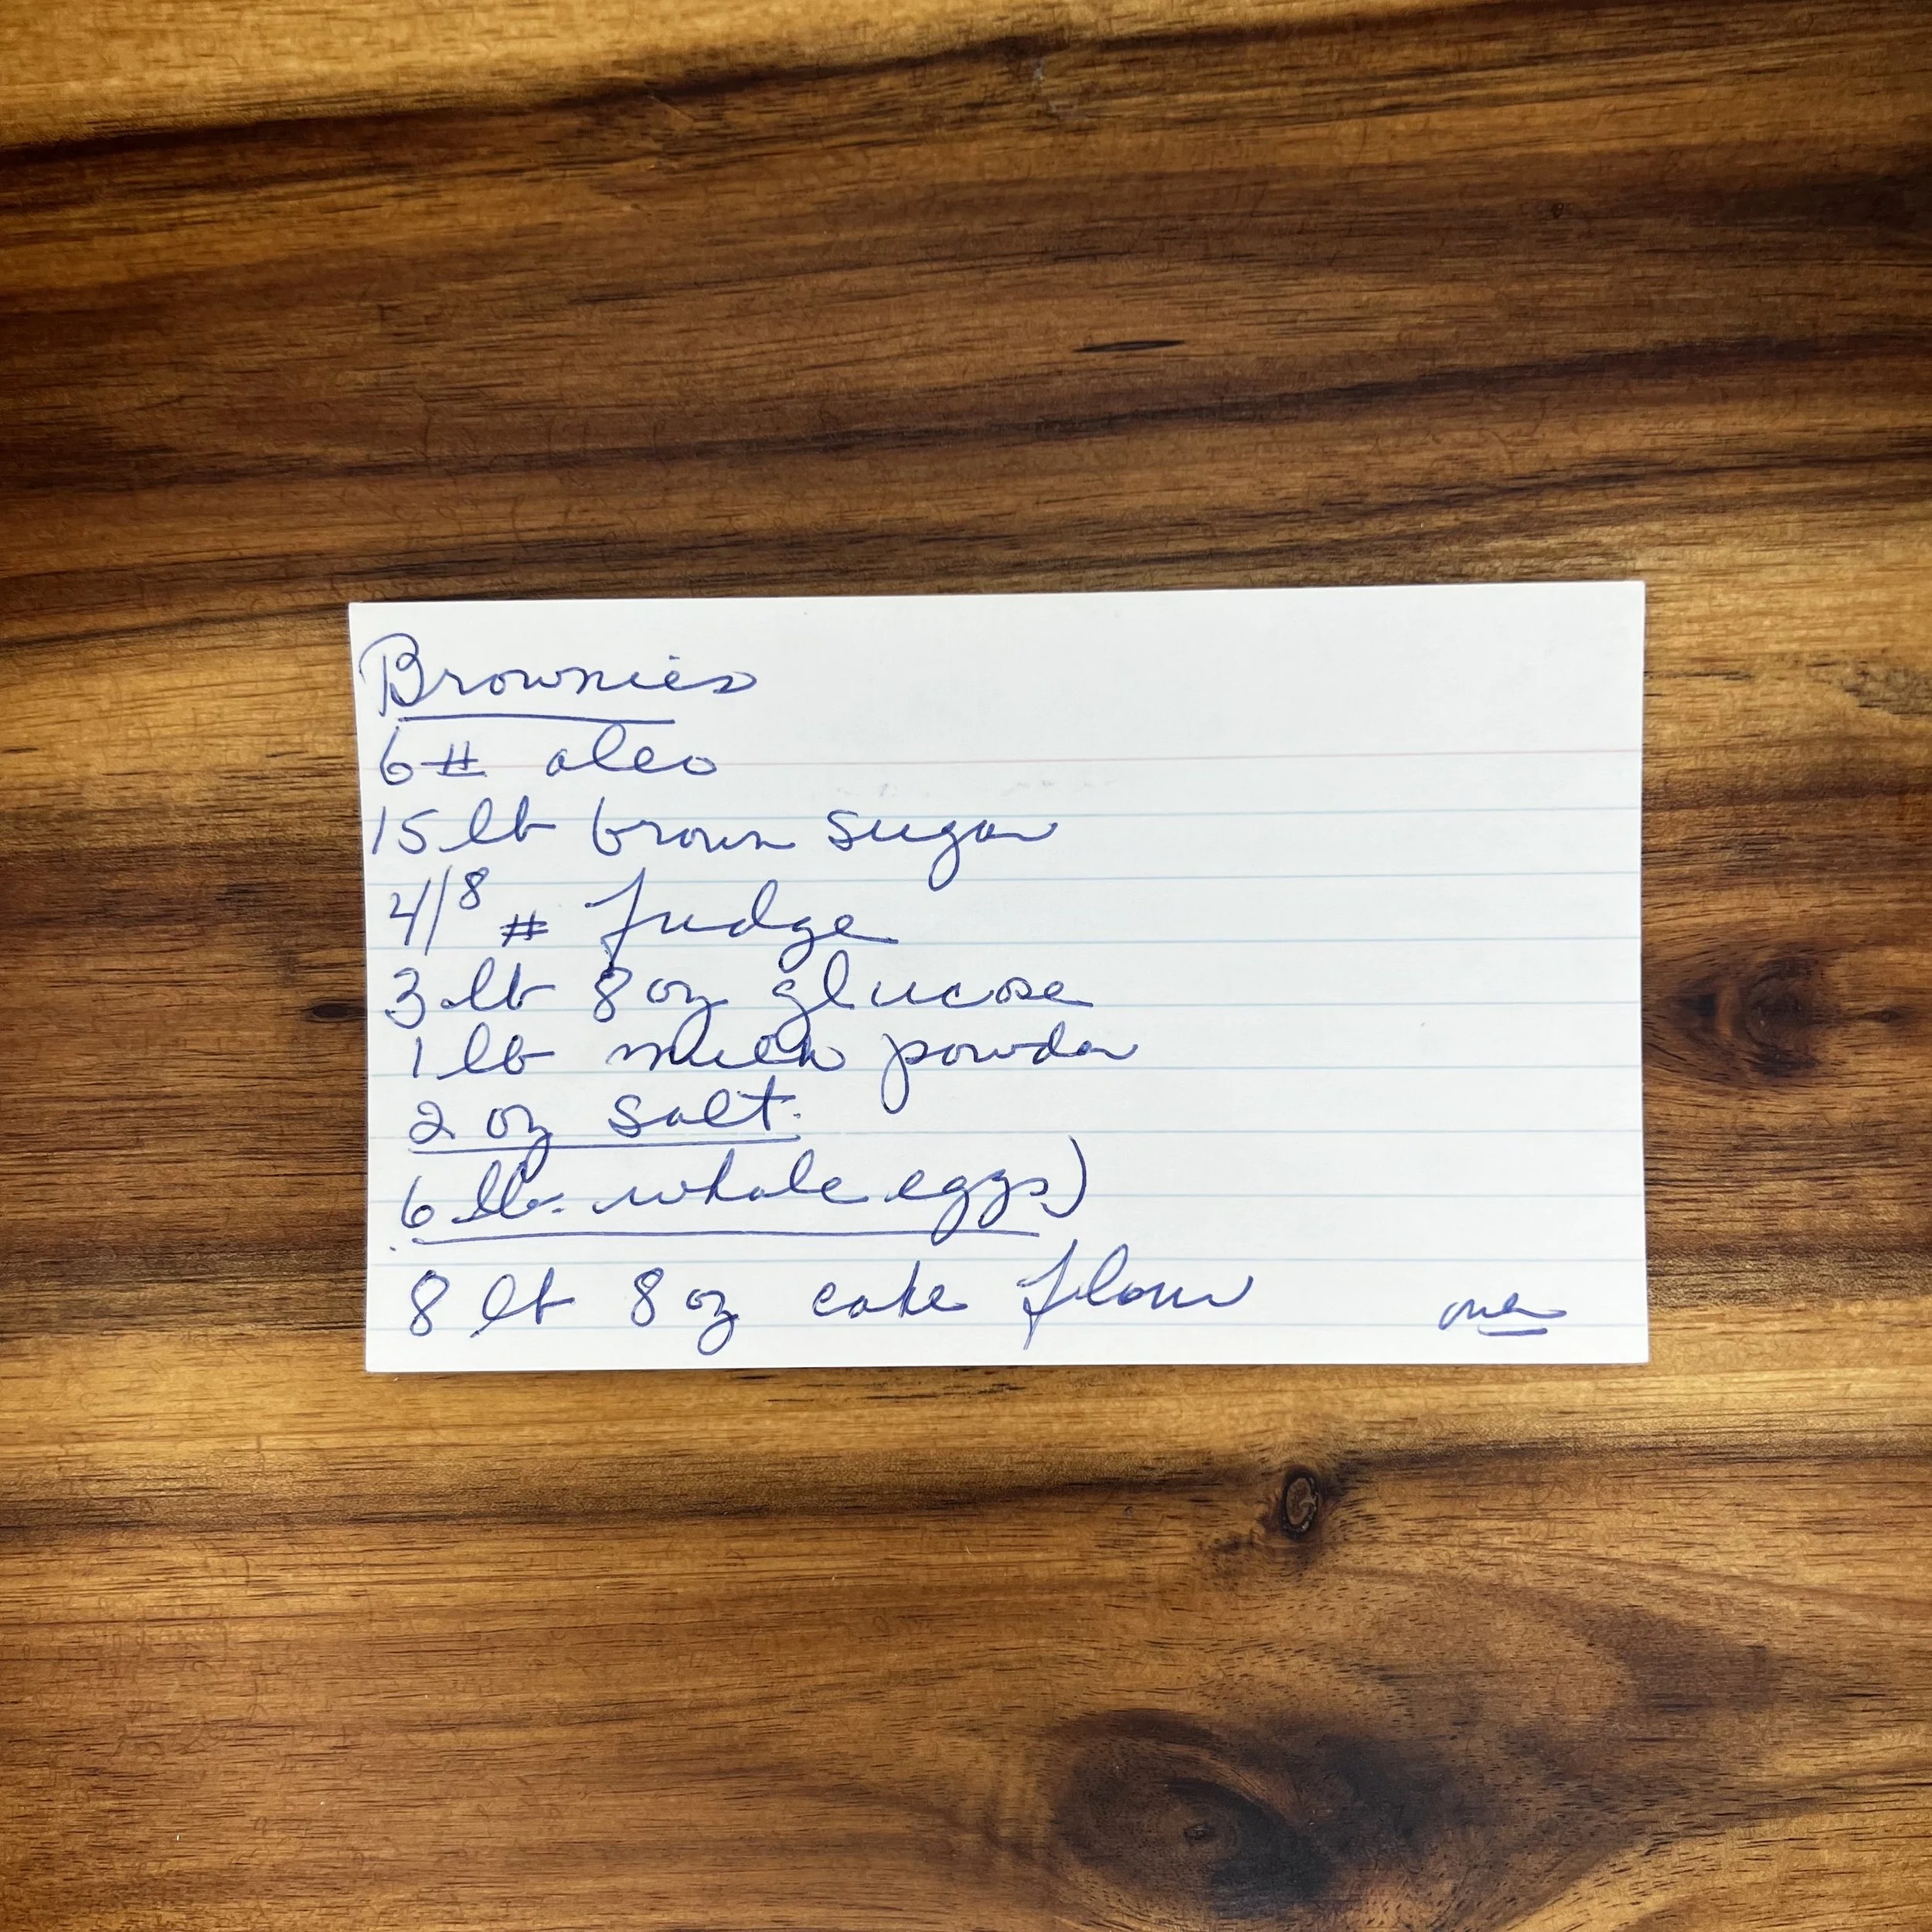 Brownies
6# oleo
15 lb brown sugar
4/8 # fudge
3 lb 8 oz glucose
1 lb milk powder
2 oz salt.
6 lb. whole eggs)
8 lb 8 oz cake flour
over